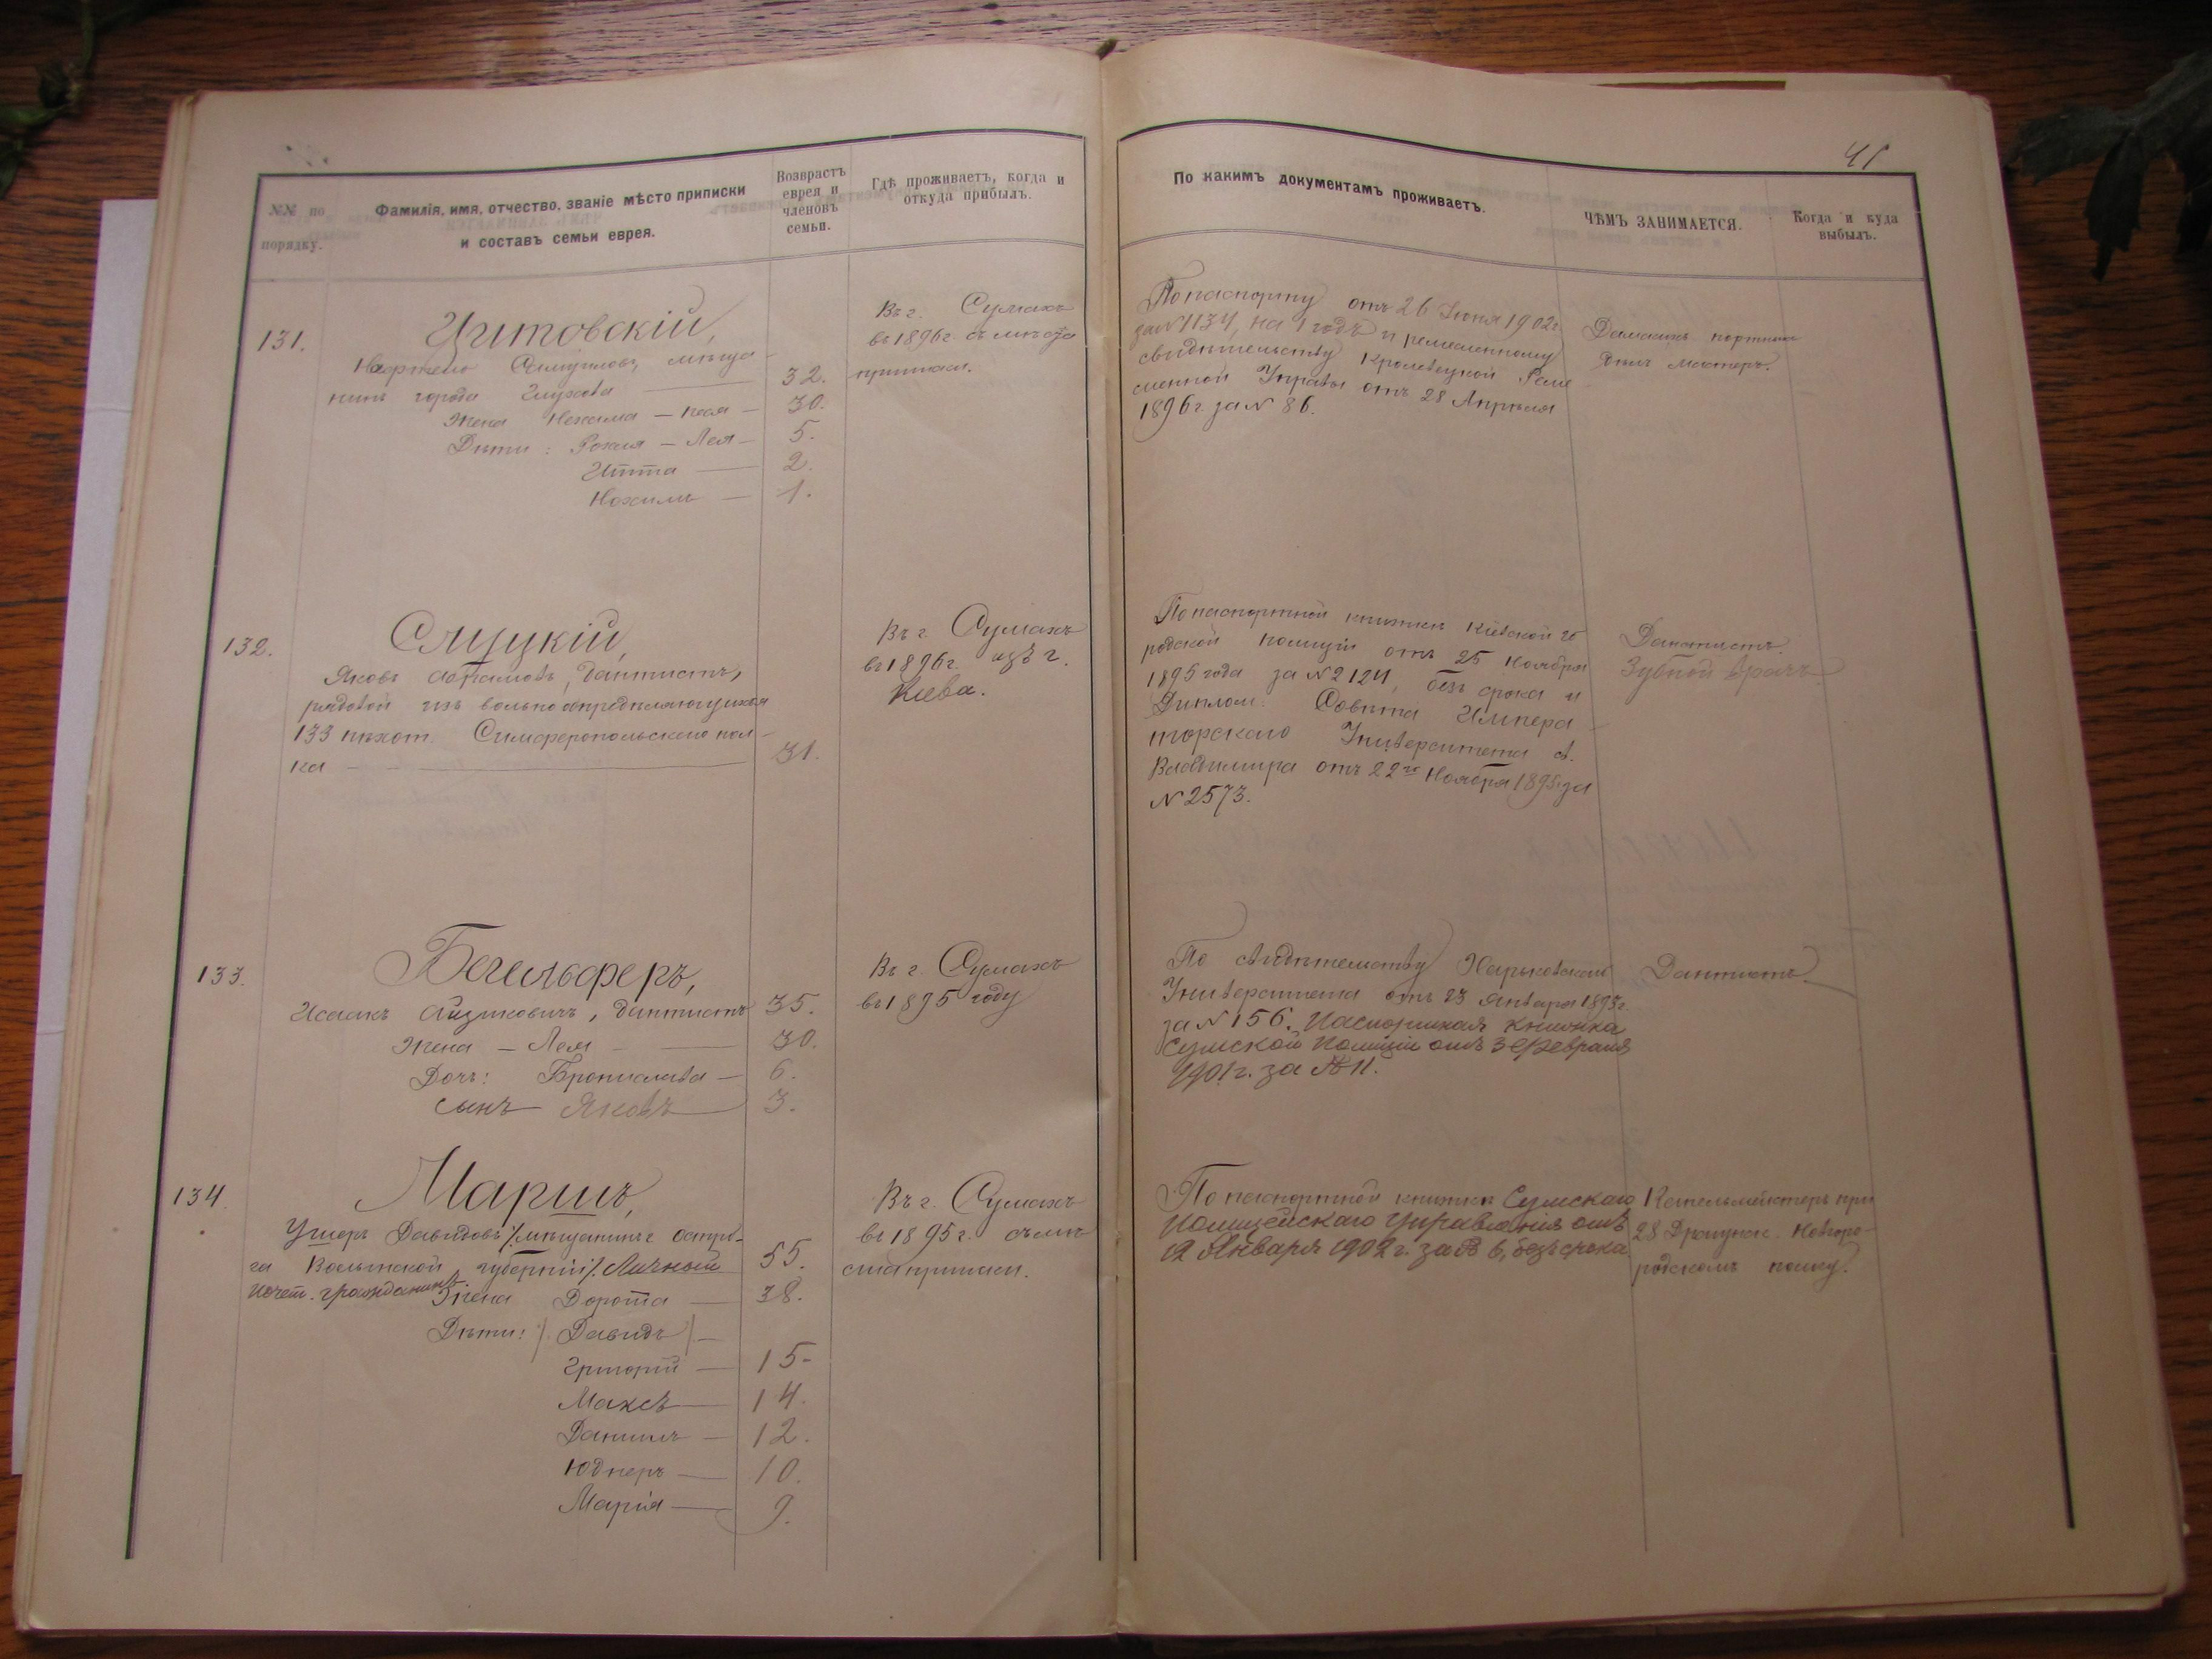 41
№№ по порядку.
Фамилія, имя, отчество, званіе мѣсто приписки
и составъ семьи еврея.
Возврастъ
еврея и
членовъ
семьи.
Гдѣ проживаетъ, когда и
откуда прибылъ.
По какимъ документамъ проживаетъ.
ЧѢМЪ ЗАНИМАЕТСЯ.
Когда и куда
выбылъ.
131.
мѣща-
нинъ города Глухова 32.
Жена Нехама — 30.
Дѣти: — Лея — 5.
Итта — 2.
1.
Въ г. Сумахъ
въ 1896 г. съ мѣста
приписки.
По паспорту отъ 26 Іюня 1902 г.
за № 1134, на 1 годъ и ремесленному
свидѣтельству Кролевецкой Реме
сленной Управы отъ 28 Апрѣля
1896 г. за № 86.
Дамскихъ портныхъ
дѣлъ мастеръ.
132.
Слуцкій,
Яковъ Абрамовъ, дантистъ,
рядовой изъ вольноопредѣляющихся
133 пѣхот. Симферопольскаго пол-
ка — 31.
Въ г. Сумахъ
въ 1896 г. изъ г.
Кіева.
По паспортной книжкѣ Кіевской го
родской полиціи отъ 25 Ноября
1895 года за № 2124, безъ срока и
Диплом. Совѣта Импера
торскаго Университета св.
Владимира отъ 22го Ноября 1895 за
№ 2573.
Дантистъ.
Зубной врачъ
133.
Бегельферъ,
Исаакъ Айзиковичъ, дантистъ 35.
Жена — Лея — 30.
Дочь: Брониславa — 6.
сынъ Яковъ 3.
Въ г. Сумахъ
въ 1895 году
По свидѣтельству Харьковскаго
Университета отъ 23 Января 1893 г.
за № 156. Паспортная книжка
Сумской Полиціи отъ 3 Февраля
1901 г. за № 11.
Дантистъ
134.
Маршъ,
Ушеръ Давидовъ /. мѣщанинъ г. Остро-
га Волынской губерніи /. Личный 55.
почет. гражданинъ. Жена Дорота — 38.
Дѣти: / Давидъ / —
Григорій — 15-
Максъ — 14.
Даніилъ — 12.
10.
Марія — 9.
Въ г. Сумахъ
въ 1895 г. съ мѣ-
ста приписки.
По паспортной книжкѣ Сумскаго
Полицейскаго Управленія отъ
12 Января 1902 г. за № 6, безъ срока
Капельмейстеръ при
28 Драгунск. Новгоро-
родскомъ полку.